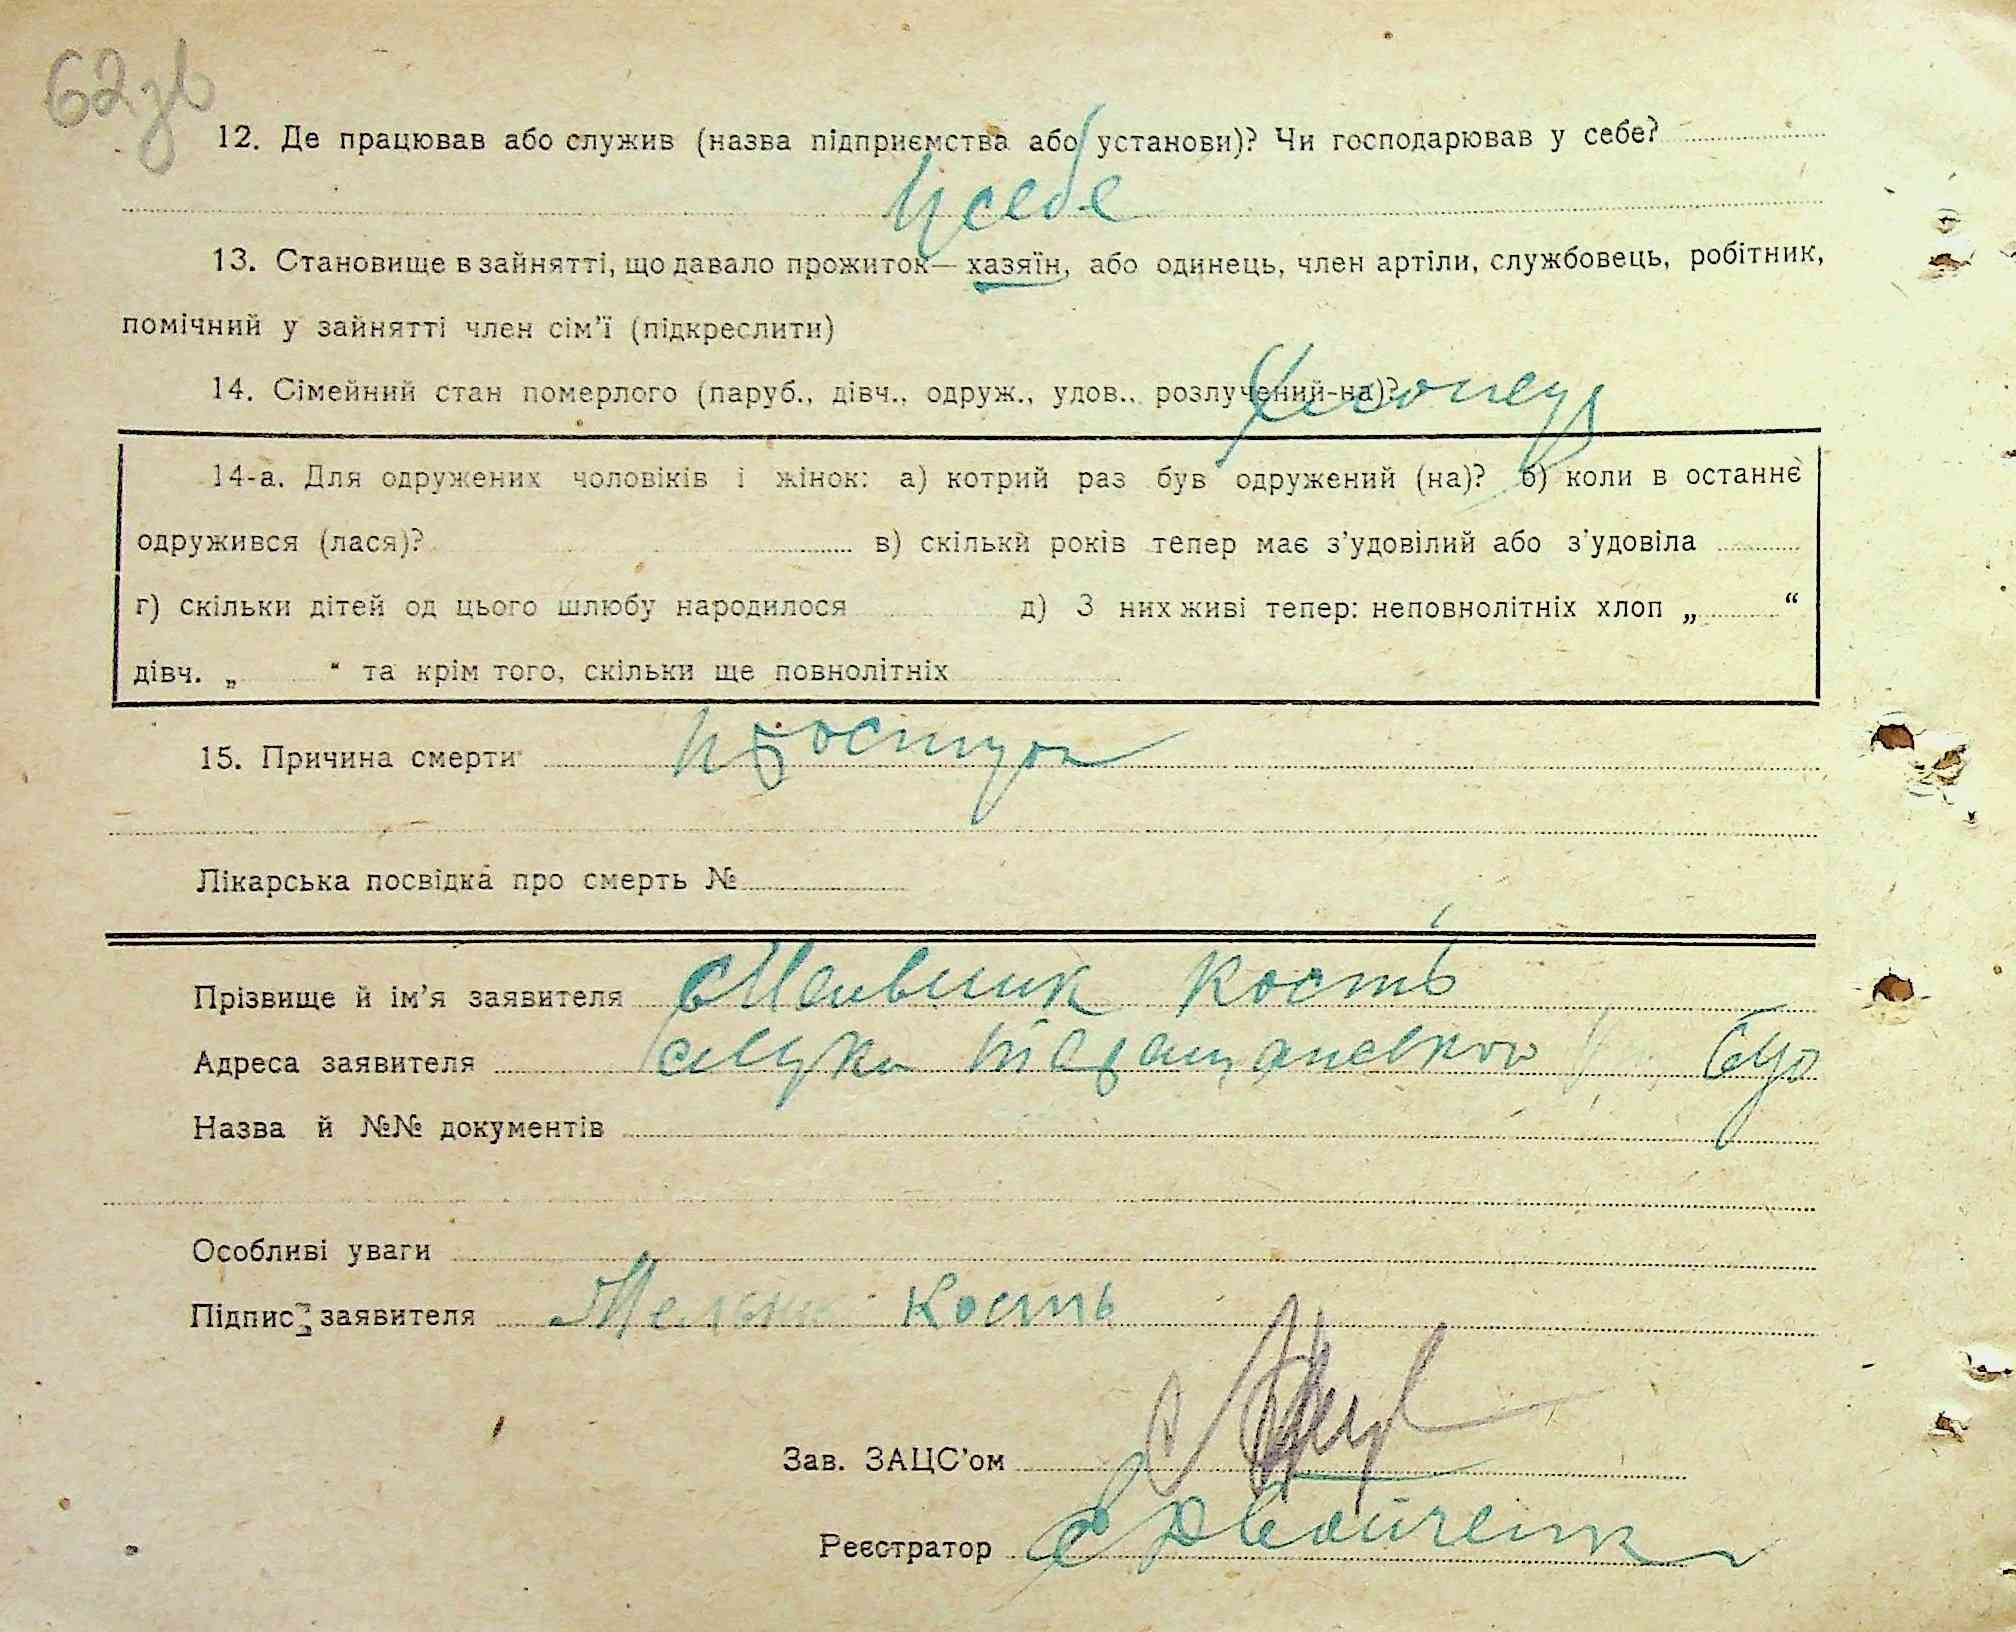 62зв
12. Де працював або служив (назва підприємства або установи)? Чи господарював у себе?
У себе
13. Становище в зайнятті, що давало прожиток— хазяїн, або одинець, член артіли, службовець, робітник,
помічний у зайнятті член сім’ї (підкреслити)
14. Сімейний стан померлого (паруб., дівч., одруж., удов., розлучений-на)? Хлопець
14-а. Для одружених чоловіків і жінок: а) котрий раз був одружений (на)? б) коли в останнє
одружився (лася)? в) скільки років тепер має з’удовілий або з’удовіла
г) скільки дітей од цього шлюбу народилося д) З них живі тепер: неповнолітніх хлоп „ “
дівч. „ “ та крім того, скільки ще повнолітніх
15. Причина смерти простуда
Лікарська посвідка про смерть №
Прізвище й ім’я заявителя Мельник Кость
Адреса заявителя
Назва й №№ документів
Особливі уваги
Підпис заявителя Мельник Кость
Зав. ЗАЦС’ом
Реєстратор